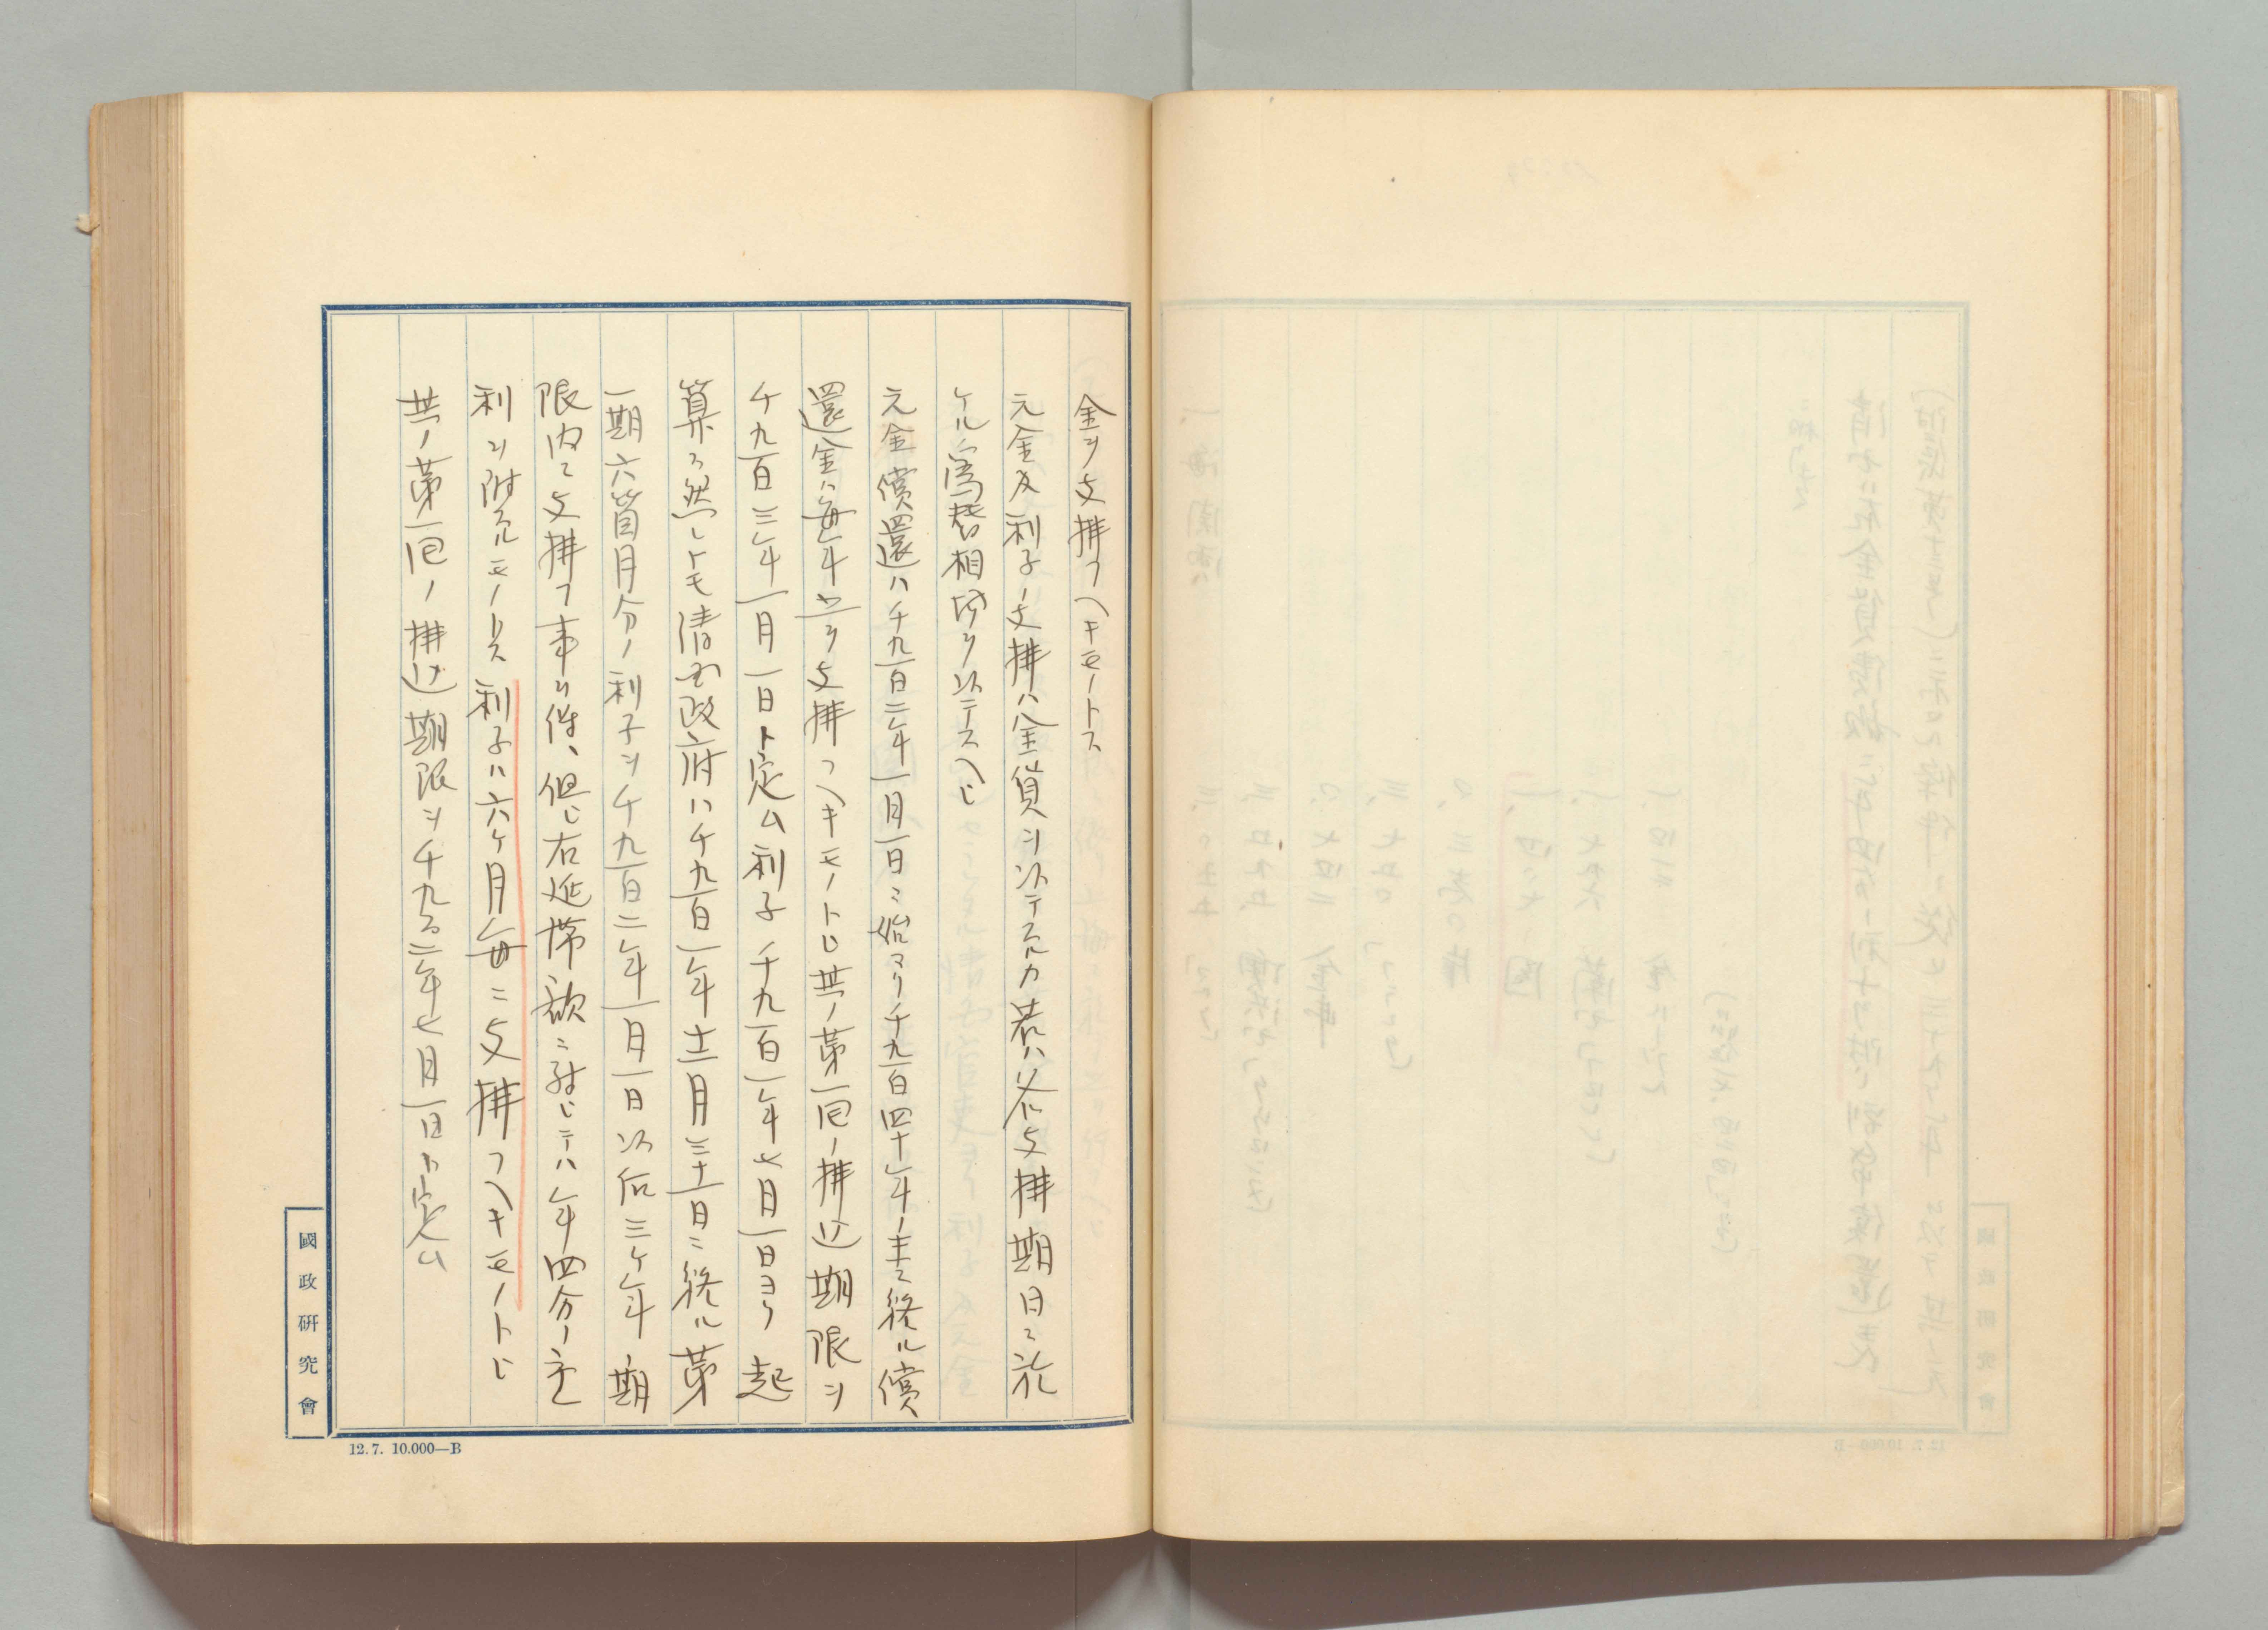 金ヲ支拂フヘキモノトス
元金及利子ノ支拂ハ金貨ヲ以テスルカ若ハ各支拂期日ニ於
ケル為替相場ヲ以テスヘシ
元金償還ハ千九百二年一月一日ニ始マリ千九百四十年ノ末ニ終ル償
還金ハ毎年之ヲ支拂フヘキモノトシ其ノ第一回ノ拂込期限ヲ
千九百三年一月一日ト定ム利子千九百一年七月一日ヨリ起
算ス然レトモ清国政府ハ千九百一年十二月三十一日ニ終ル第
一期六箇月分ノ利子ヲ千九百二年一月一日以后三ケ年ノ期
限内ニ支拂フ事ヲ得、但シ右延滞額ニ対シテハ年四分ノ
利ヲ附スルモノトス利子ハ六ケ月毎ニ支拂フヘキモノトシ
其ノ第一回ノ拂込期限ヲ千九百二年七月一日ト定ム
國政研究會
12.7. 10.000—B